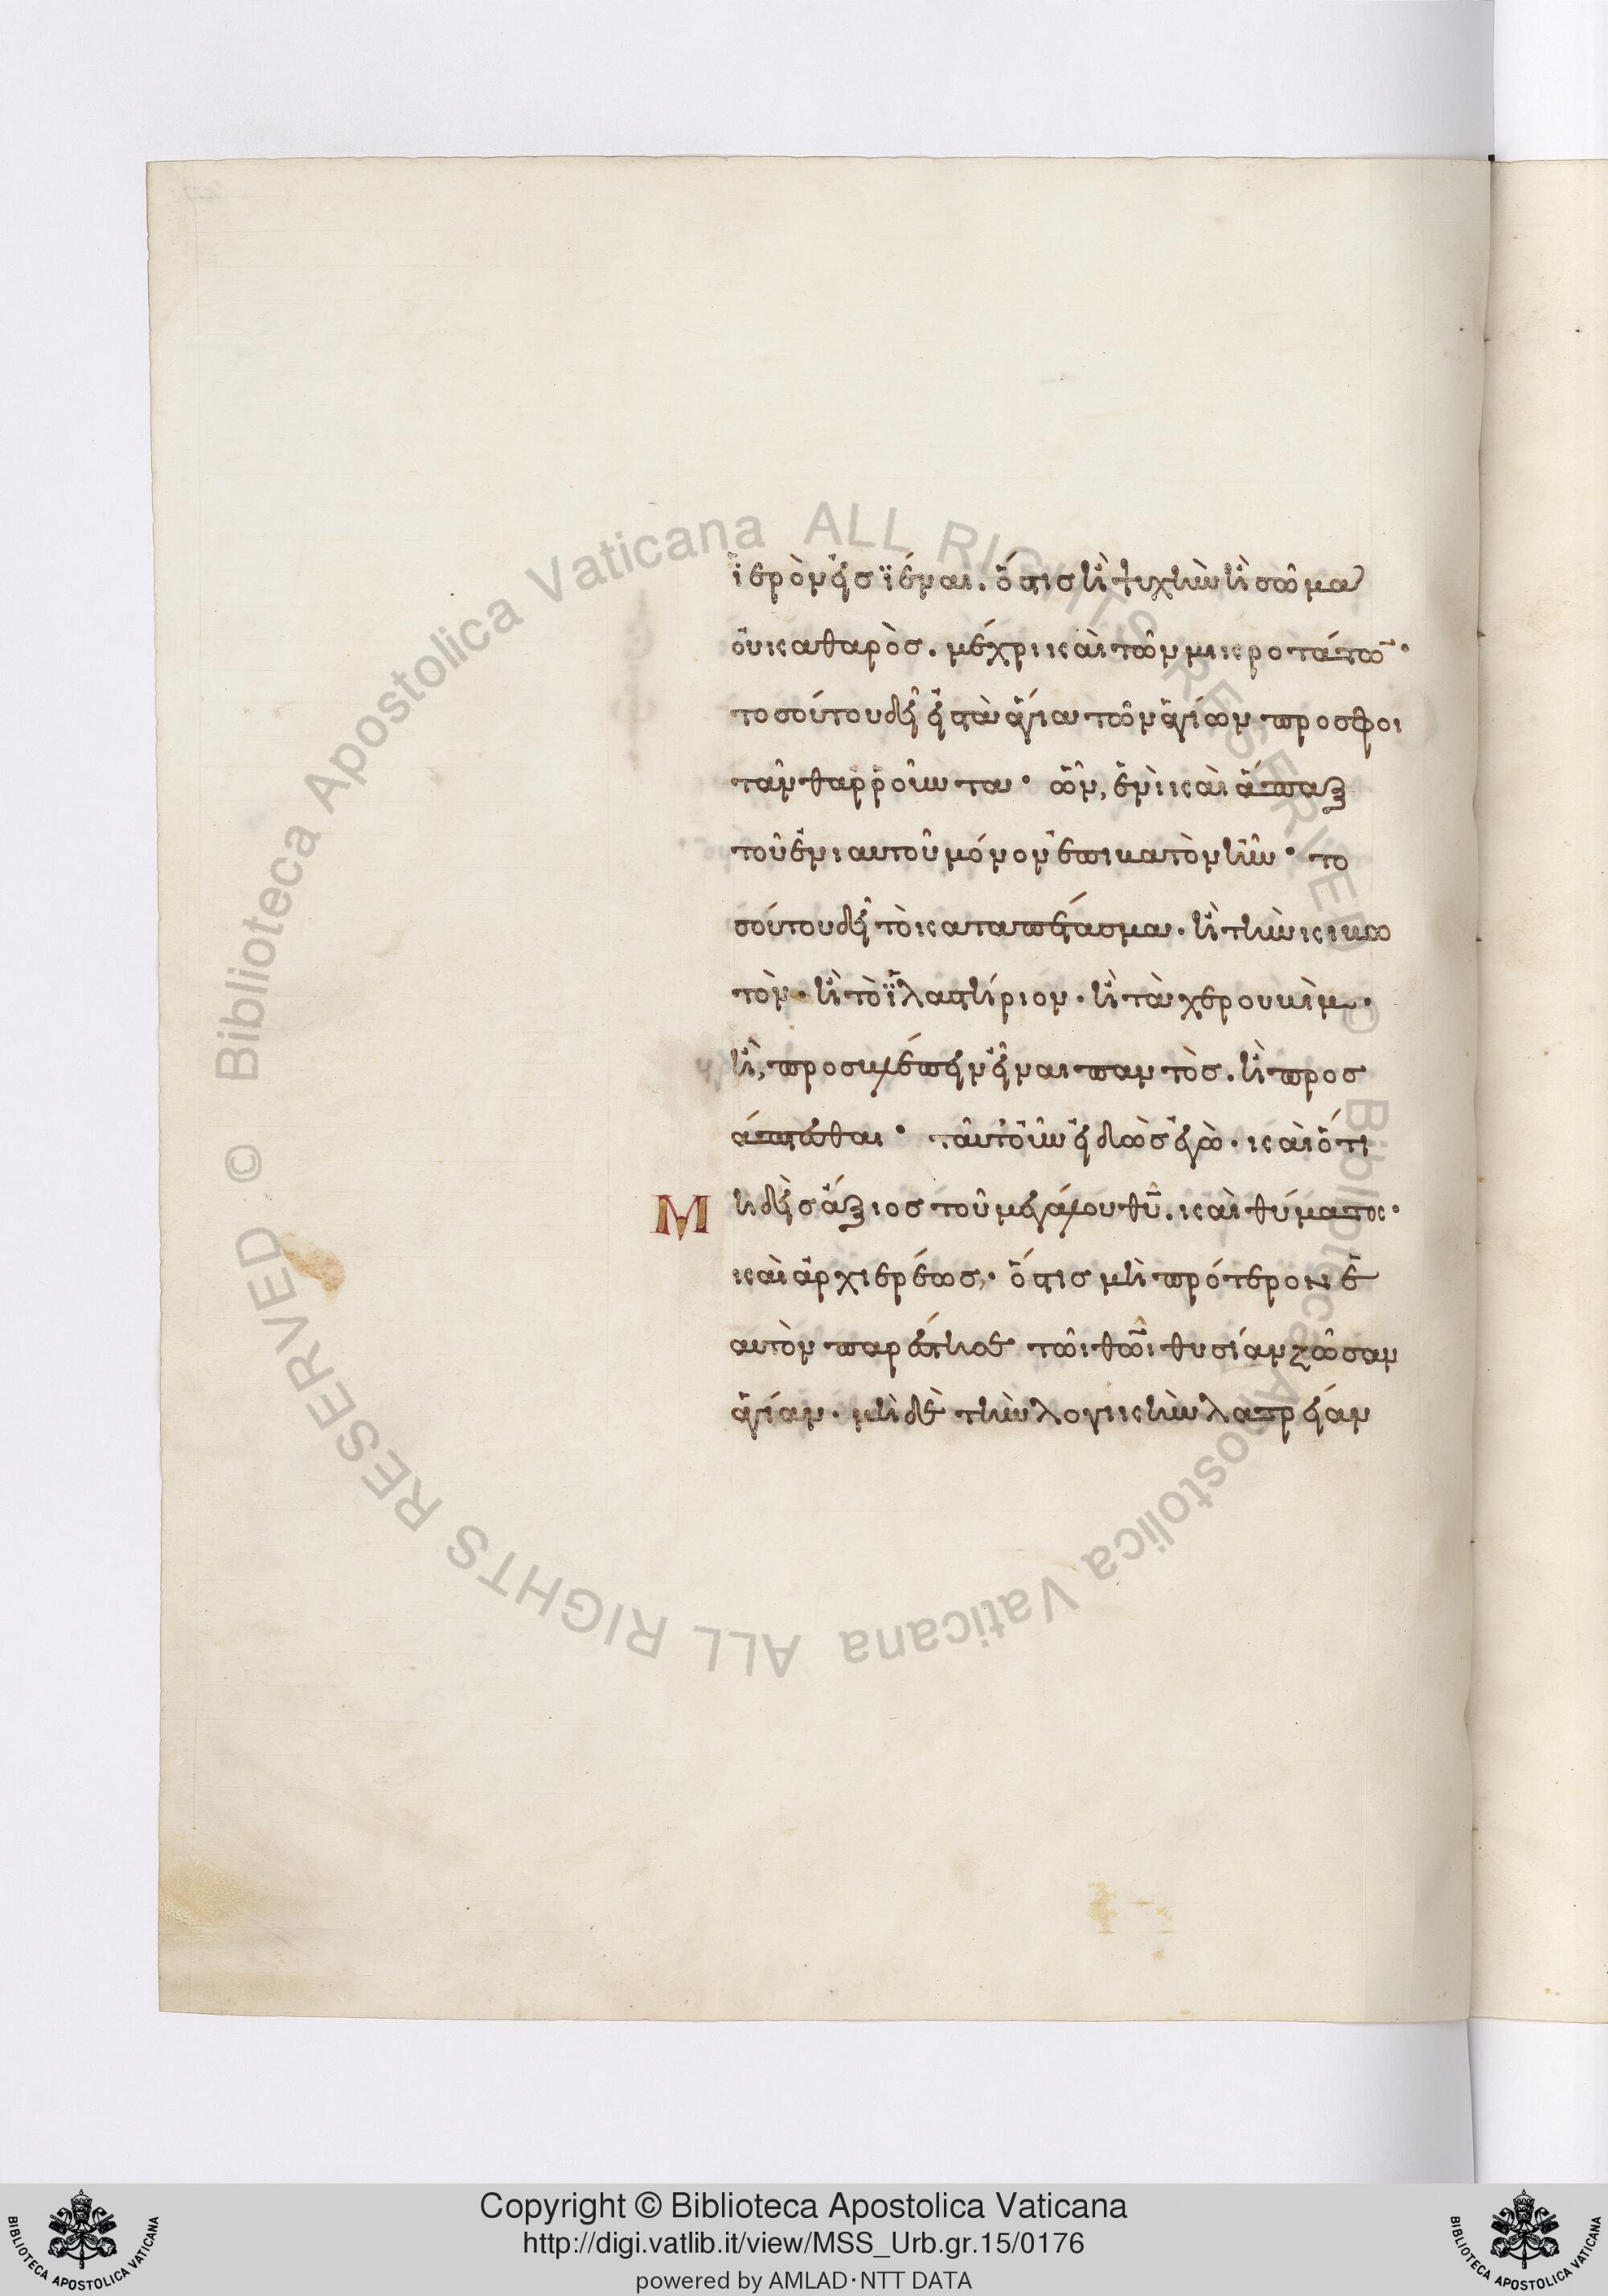 ἱερὸν εἰσϊέναι. ὅστις ἢ ψυχὴν ἢ σῶμα
οὐ καθαρὸσ. μέχρι και τῶν μικροτάτω̅·
τοσούτου δεῖ εἰς τὰ ἅγια τῶν ἁγίων προσφοι
τᾶν θαρροῦντα· ὧν, ἑνὶ καὶ ἅπαξ
τοῦ ἐνιαυτοῦ μόνον ἐπιβατὸν ἦν· το
σούτου δεῖ τὸ καταπέτασμα. ἢ τὴν κιβω
τὸν. ἢ τὸ ϊλαστήριον. ἢ τὰ χερουβὶμ.
ἢ, προσβλέπειν εἶναι παντὸσ. ἢ προσ
άπτεσθαι· ταῦτ' οὖν εἰδὼσ ἐγὼ. καὶ ὅτι
Μηδεὶσ ἄξιοσ τοῦ μεγάλου θ̅υ̅. καὶ θύματος·
καὶ ἀρχιερέωσ, ὅστισ μὴ πρότερον ἑ
αυτὸν παρέστησε τῶι θ̅ω̅ι θυσίαν ζῶσαν
ἁγίαν. μὴ δὲ τὴν λογικὴν λατρείαν
Copyright © Biblioteca Apostolica Vaticana
http://digi.vatlib.it/view/MSS_Urb.gr.15/0176
powered by AMLAD·NTT DATA
BIBLIOTECA APOSTOLICA VATICANA
BIBLIOTECA APOSTOLICA VATICANA
© Biblioteca Apostolica Vaticana ALL RIGHTS RESERVED
© Biblioteca Apostolica Vaticana ALL RIGHTS RESERVED